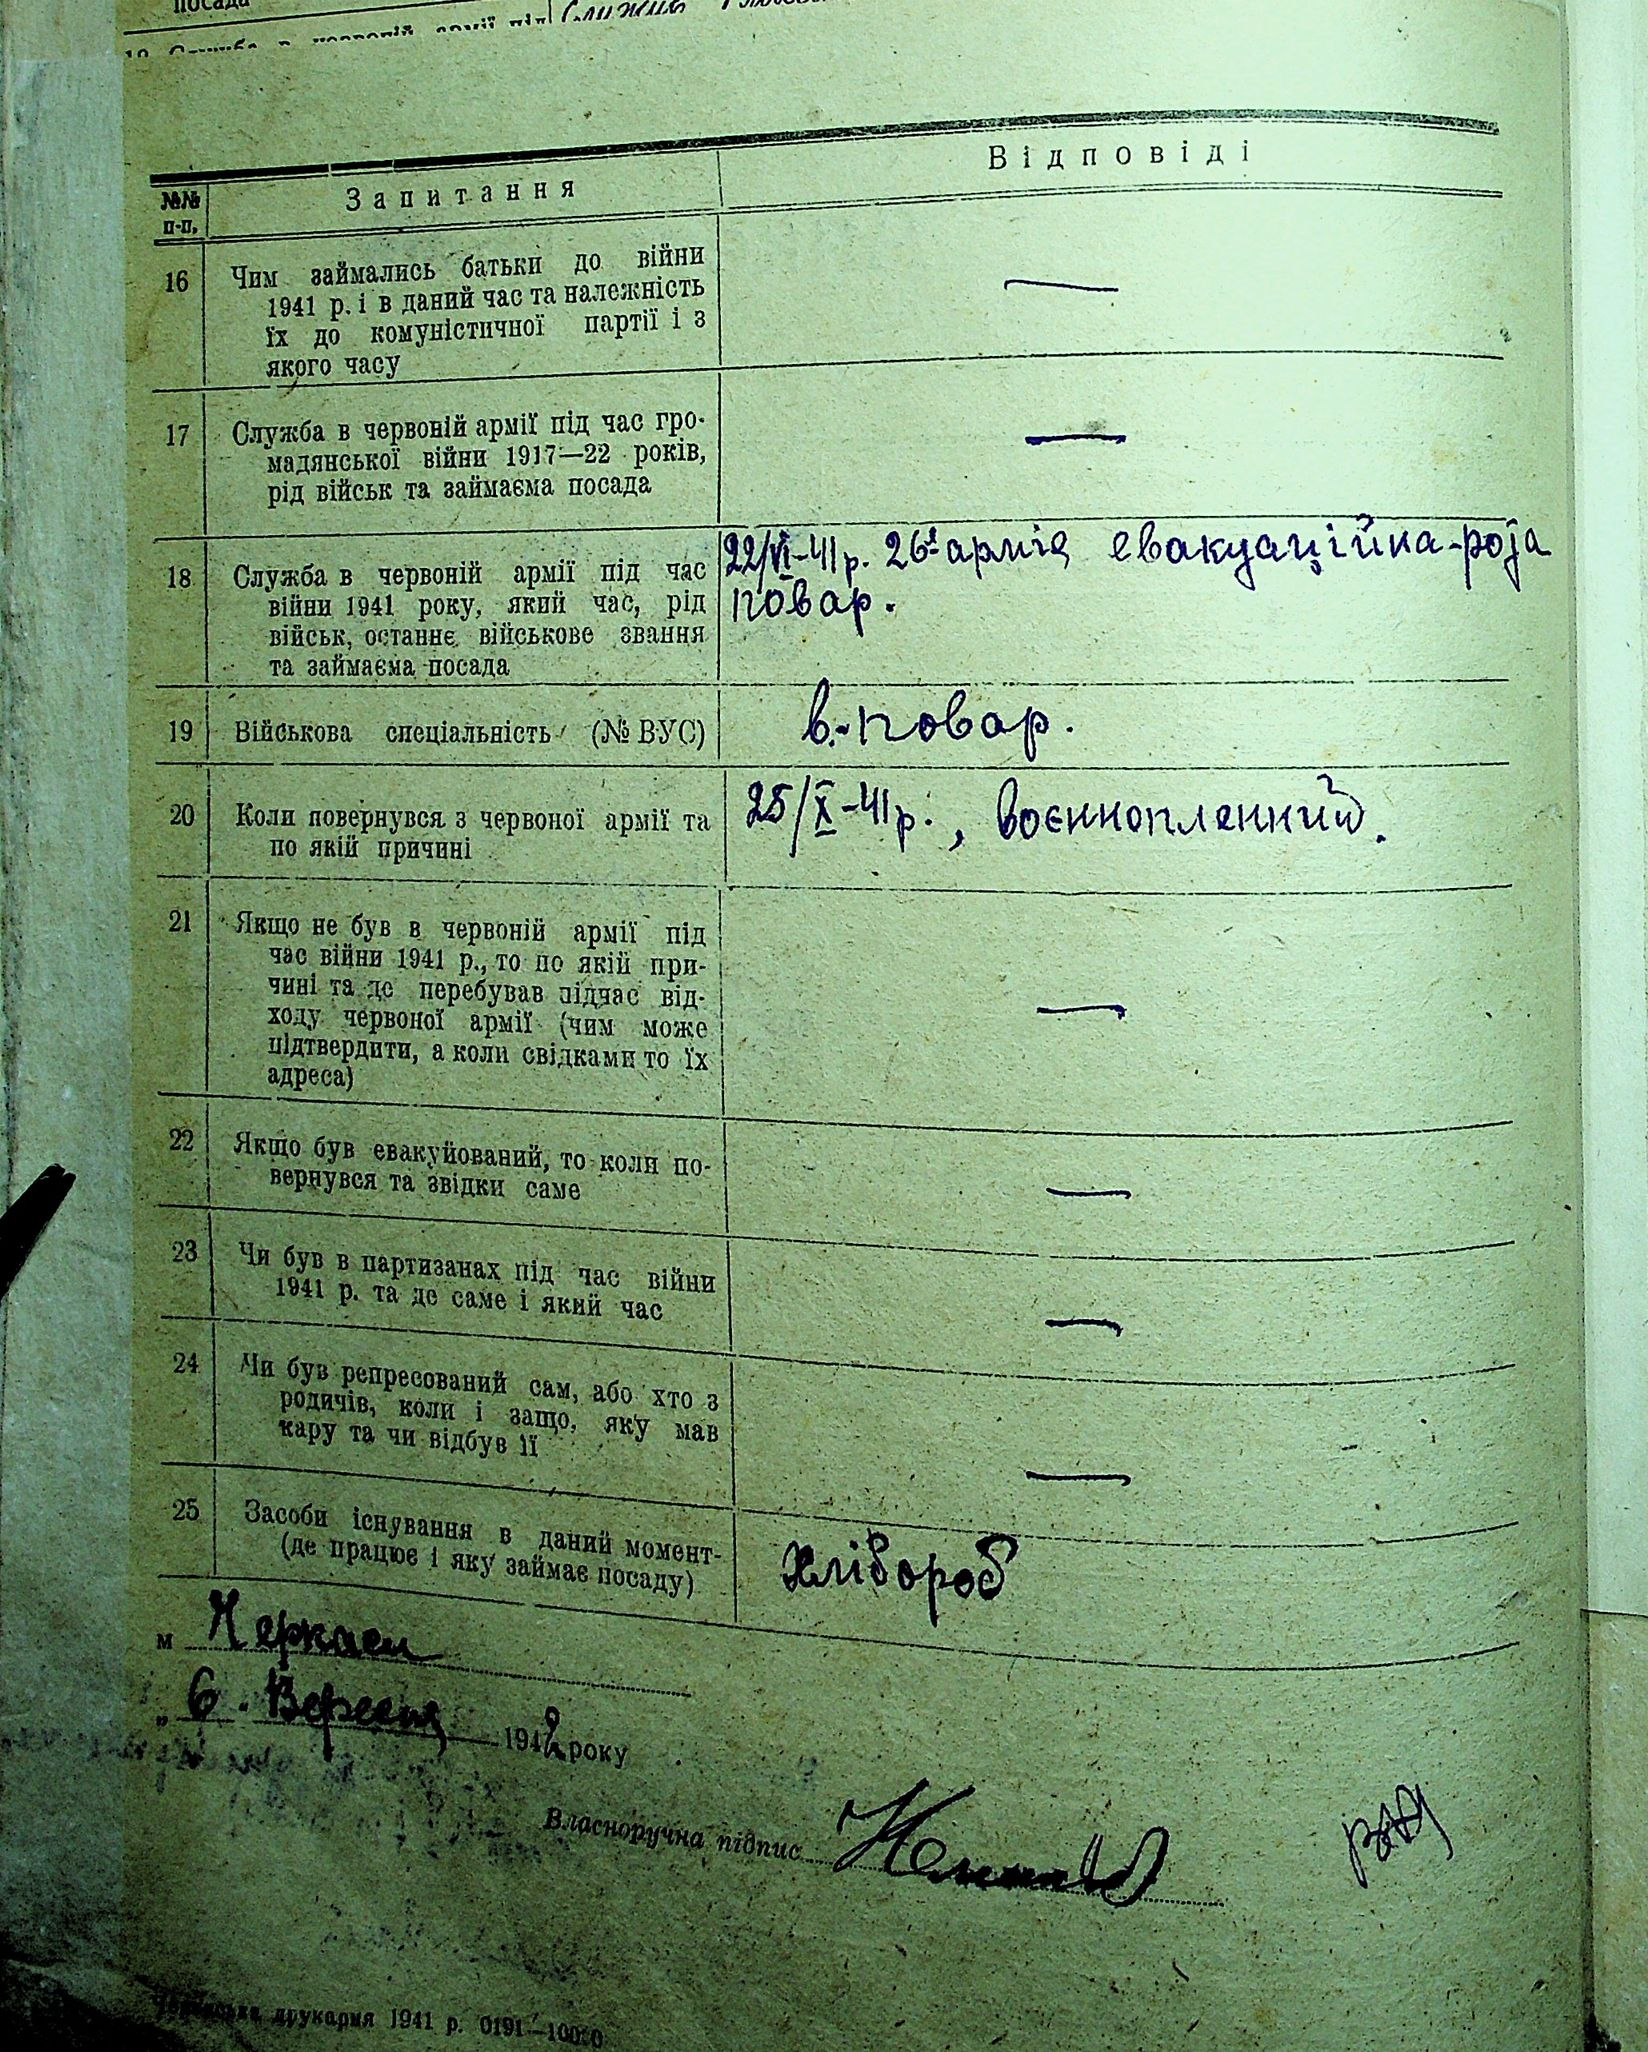 посада
Служив
Відповіді
№№
п-п.
Запитання
16 Чим займались батьки до війни
1941 р. і в даний час та належність
їх до комуністичної партії і з
якого часу
—
17 Служба в червоній армії під час гро-
мадянської війни 1917—22 років,
рід військ та займаєма посада
—
18 Служба в червоній армії під час
війни 1941 року, який час, рід
військ, останнє військове звання
та займаєма посада
22/VI-41р. 26а армія евакуаційна-рота
повар.
19 Військова спеціальність (№ ВУС)
в.-повар.
20 Коли повернувся з червоної армії та
по якій причині
25/X-41р., воєннопленний.
21 Якщо не був в червоній армії під
час війни 1941 р., то по якій при-
чині та де перебував підчас від-
ходу червоної армії (чим може
підтвердити, а коли свідками то їх
адреса)
—
22 Якщо був евакуйований, то коли по-
вернувся та звідки саме
—
23 Чи був в партизанах під час війни
1941 р. та де саме і який час
—
24 Чи був репресований сам, або хто з
родичів, коли і защо, яку мав
кару та чи відбув її
—
25 Засоби існування в даний момент-
(де працює і яку займає посаду)
хлібороб
м Черкаси
„ 6. Вересня 1942 року
Власноручна підпис
друкарня 1941 р. 0191—10000